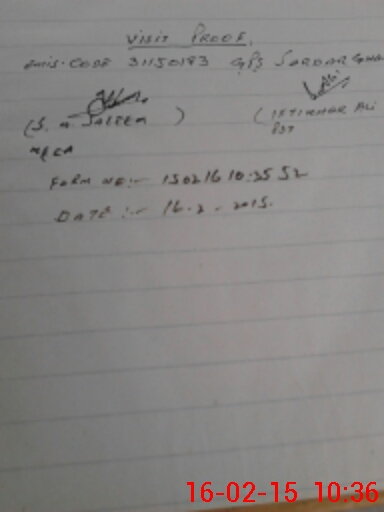 VISIT PROOF.
EMIS-CODE 31150193 GPS SARDAR
(S. M. SALEEM ) (IFTIKHAR ALI
MEA PST
FORM NO:- 150216 10:35 52
DATE :- 16-2-2015.
16-02-15 10:36